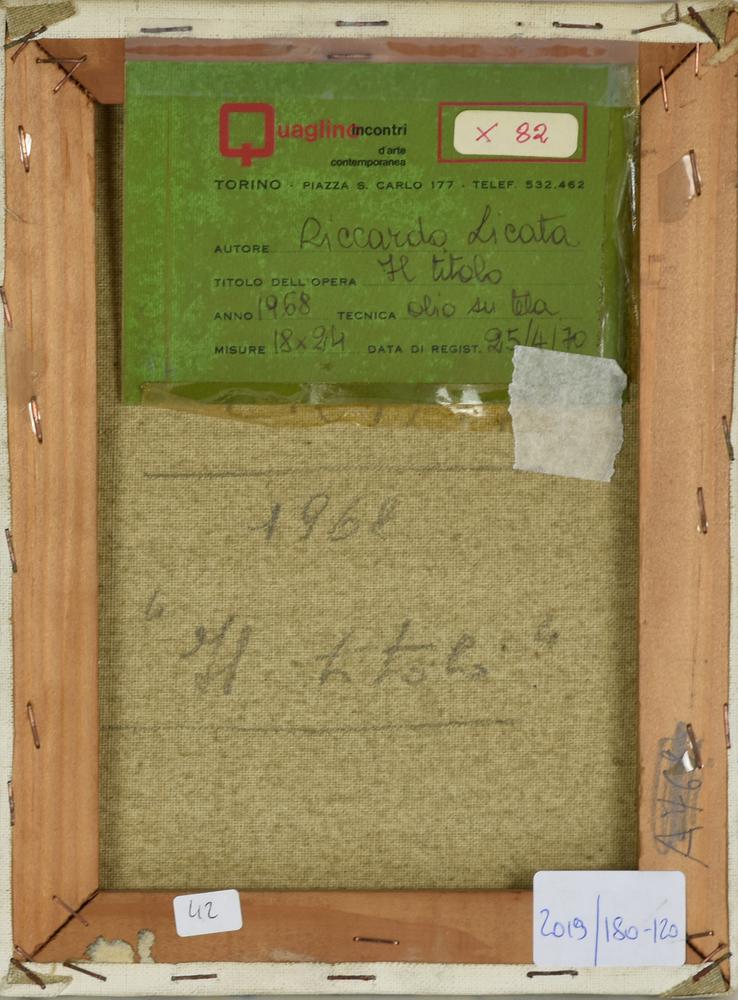 Quaglino Incontri
d'arte
contemporanea
X 82
TORINO · PIAZZA S. CARLO 177 · TELEF. 532.462
AUTORE Riccardo Licata
TITOLO DELL'OPERA Il titolo
ANNO 1968 TECNICA olio su tela
MISURE 18x24 DATA DI REGIST. 25/4/70
1968
"Il titolo"
42
2019/180-120